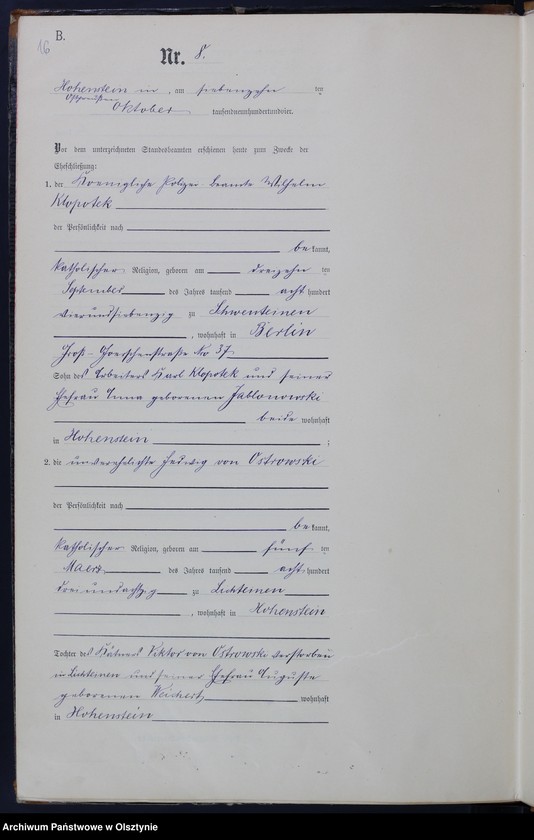 16
B.
Nr. 8.
Hohenstein in, am siebenzehn ten
Ostpreußen
Oktober tausendneunhundertundvier.
Vor dem unterzeichneten Standesbeamten erschienen heute zum Zwecke der
Eheschließung:
1. der Koenigliche Polizei-beamte Wilhelm
Klopotek
der Persönlichkeit nach
be kannt,
katholischer Religion, geboren am dreizehn ten
September des Jahres tausend acht hundert
vierundsiebenzig zu Schwenteinen
, wohnhaft in Berlin
Groß-Goerschenstraße No 37
Sohn des Arbeiters Karl Klopotek und seiner
Ehefrau Anna geborenen Jablonowski
beide wohnhaft
in Hohenstein ;
2. die unverehelichte Hedwig von Ostrowski
der Persönlichkeit nach
be kannt,
katholischer Religion, geboren am fünf ten
Maerz des Jahres tausend acht hundert
dreiundachtzig zu Lichteinen
, wohnhaft in Hohenstein
Tochter des Kätners Viktor von Ostrowski verstorben
in Lichteinen und seiner Ehefrau Auguste
geborenen Weichert, wohnhaft
in Hohenstein
Archiwum Państwowe w Olsztynie